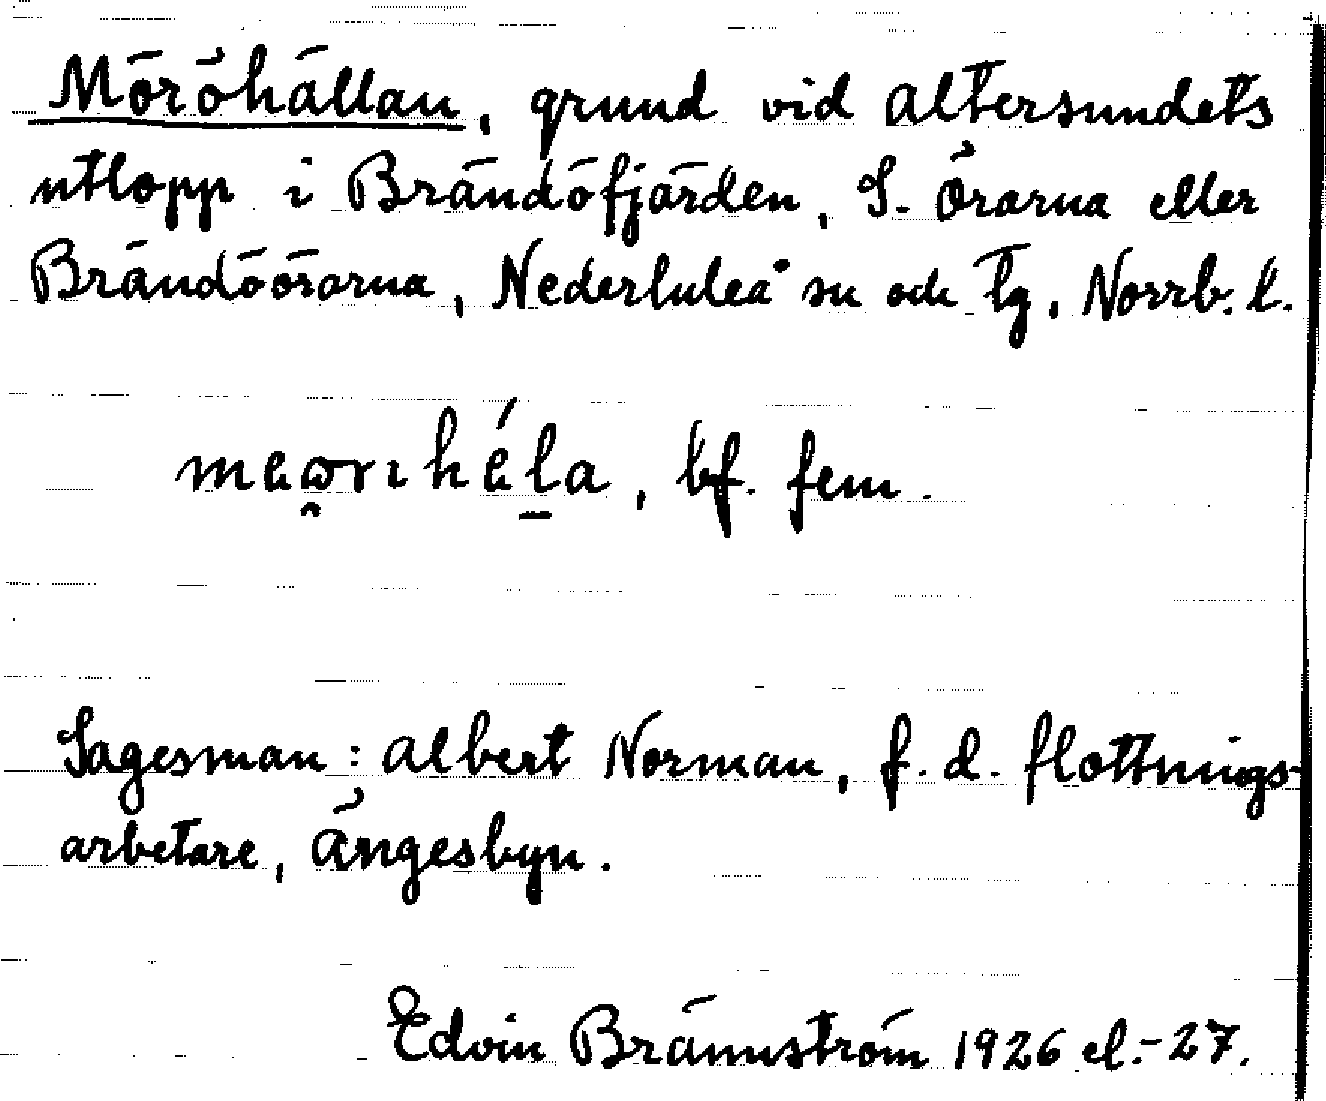 Möröhällan, grund vid Altersundets
utlopp i Brändöfjärden, S. Örarna eller
Brändöörarna, Nederluleå sn och tg, Norrb. l.
bf. fem.
Sagesman: Albert Norman, f. d. flottnings-
arbetare, Ängesbyn.
Edvin Brännström 1926 el. -27.